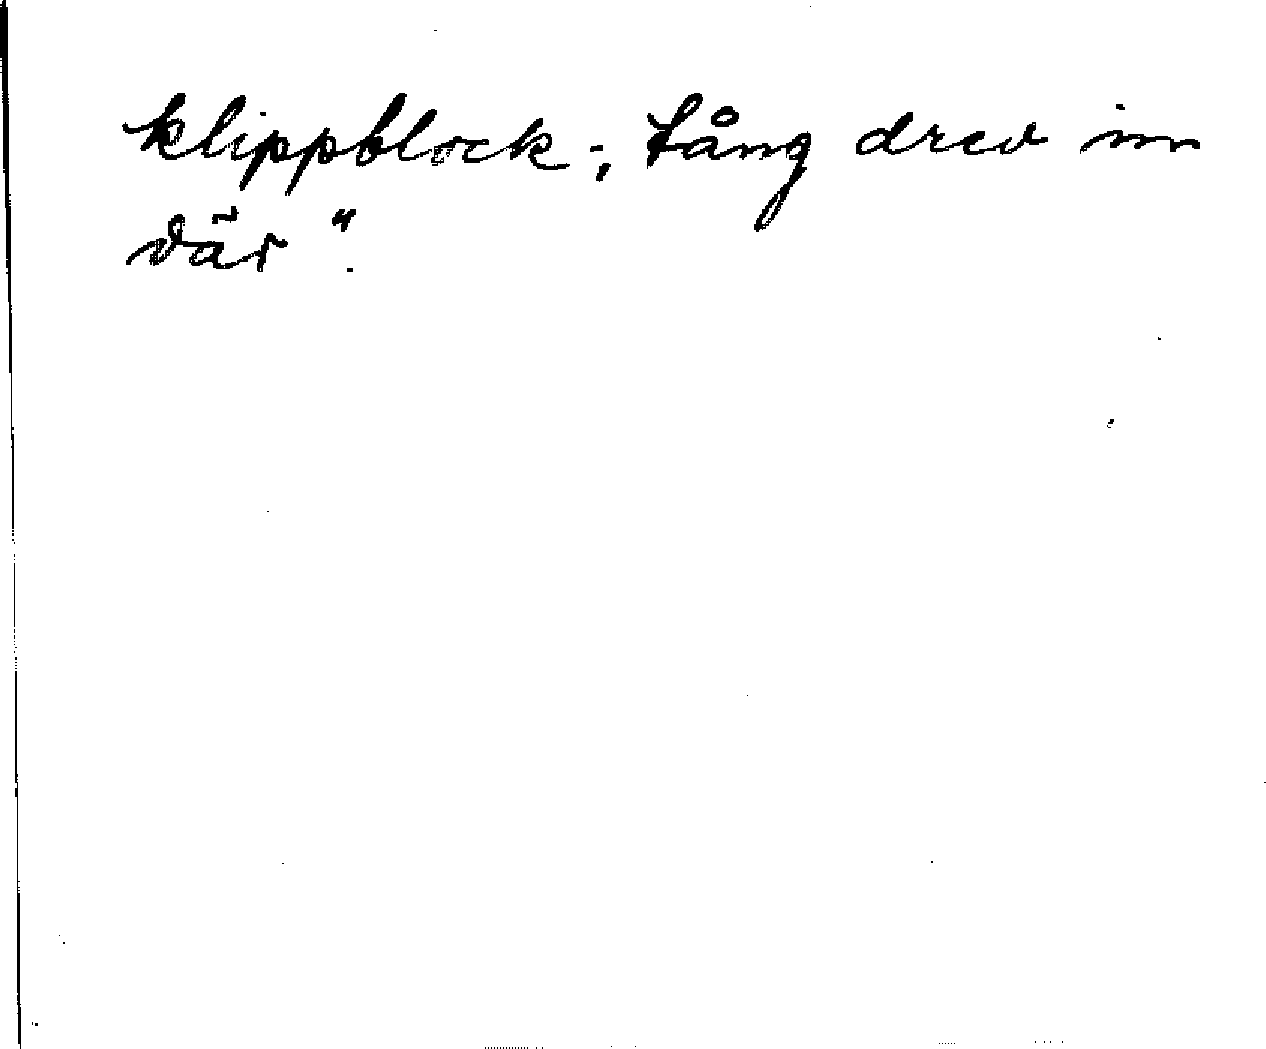 klippblock; tång drev in
där".